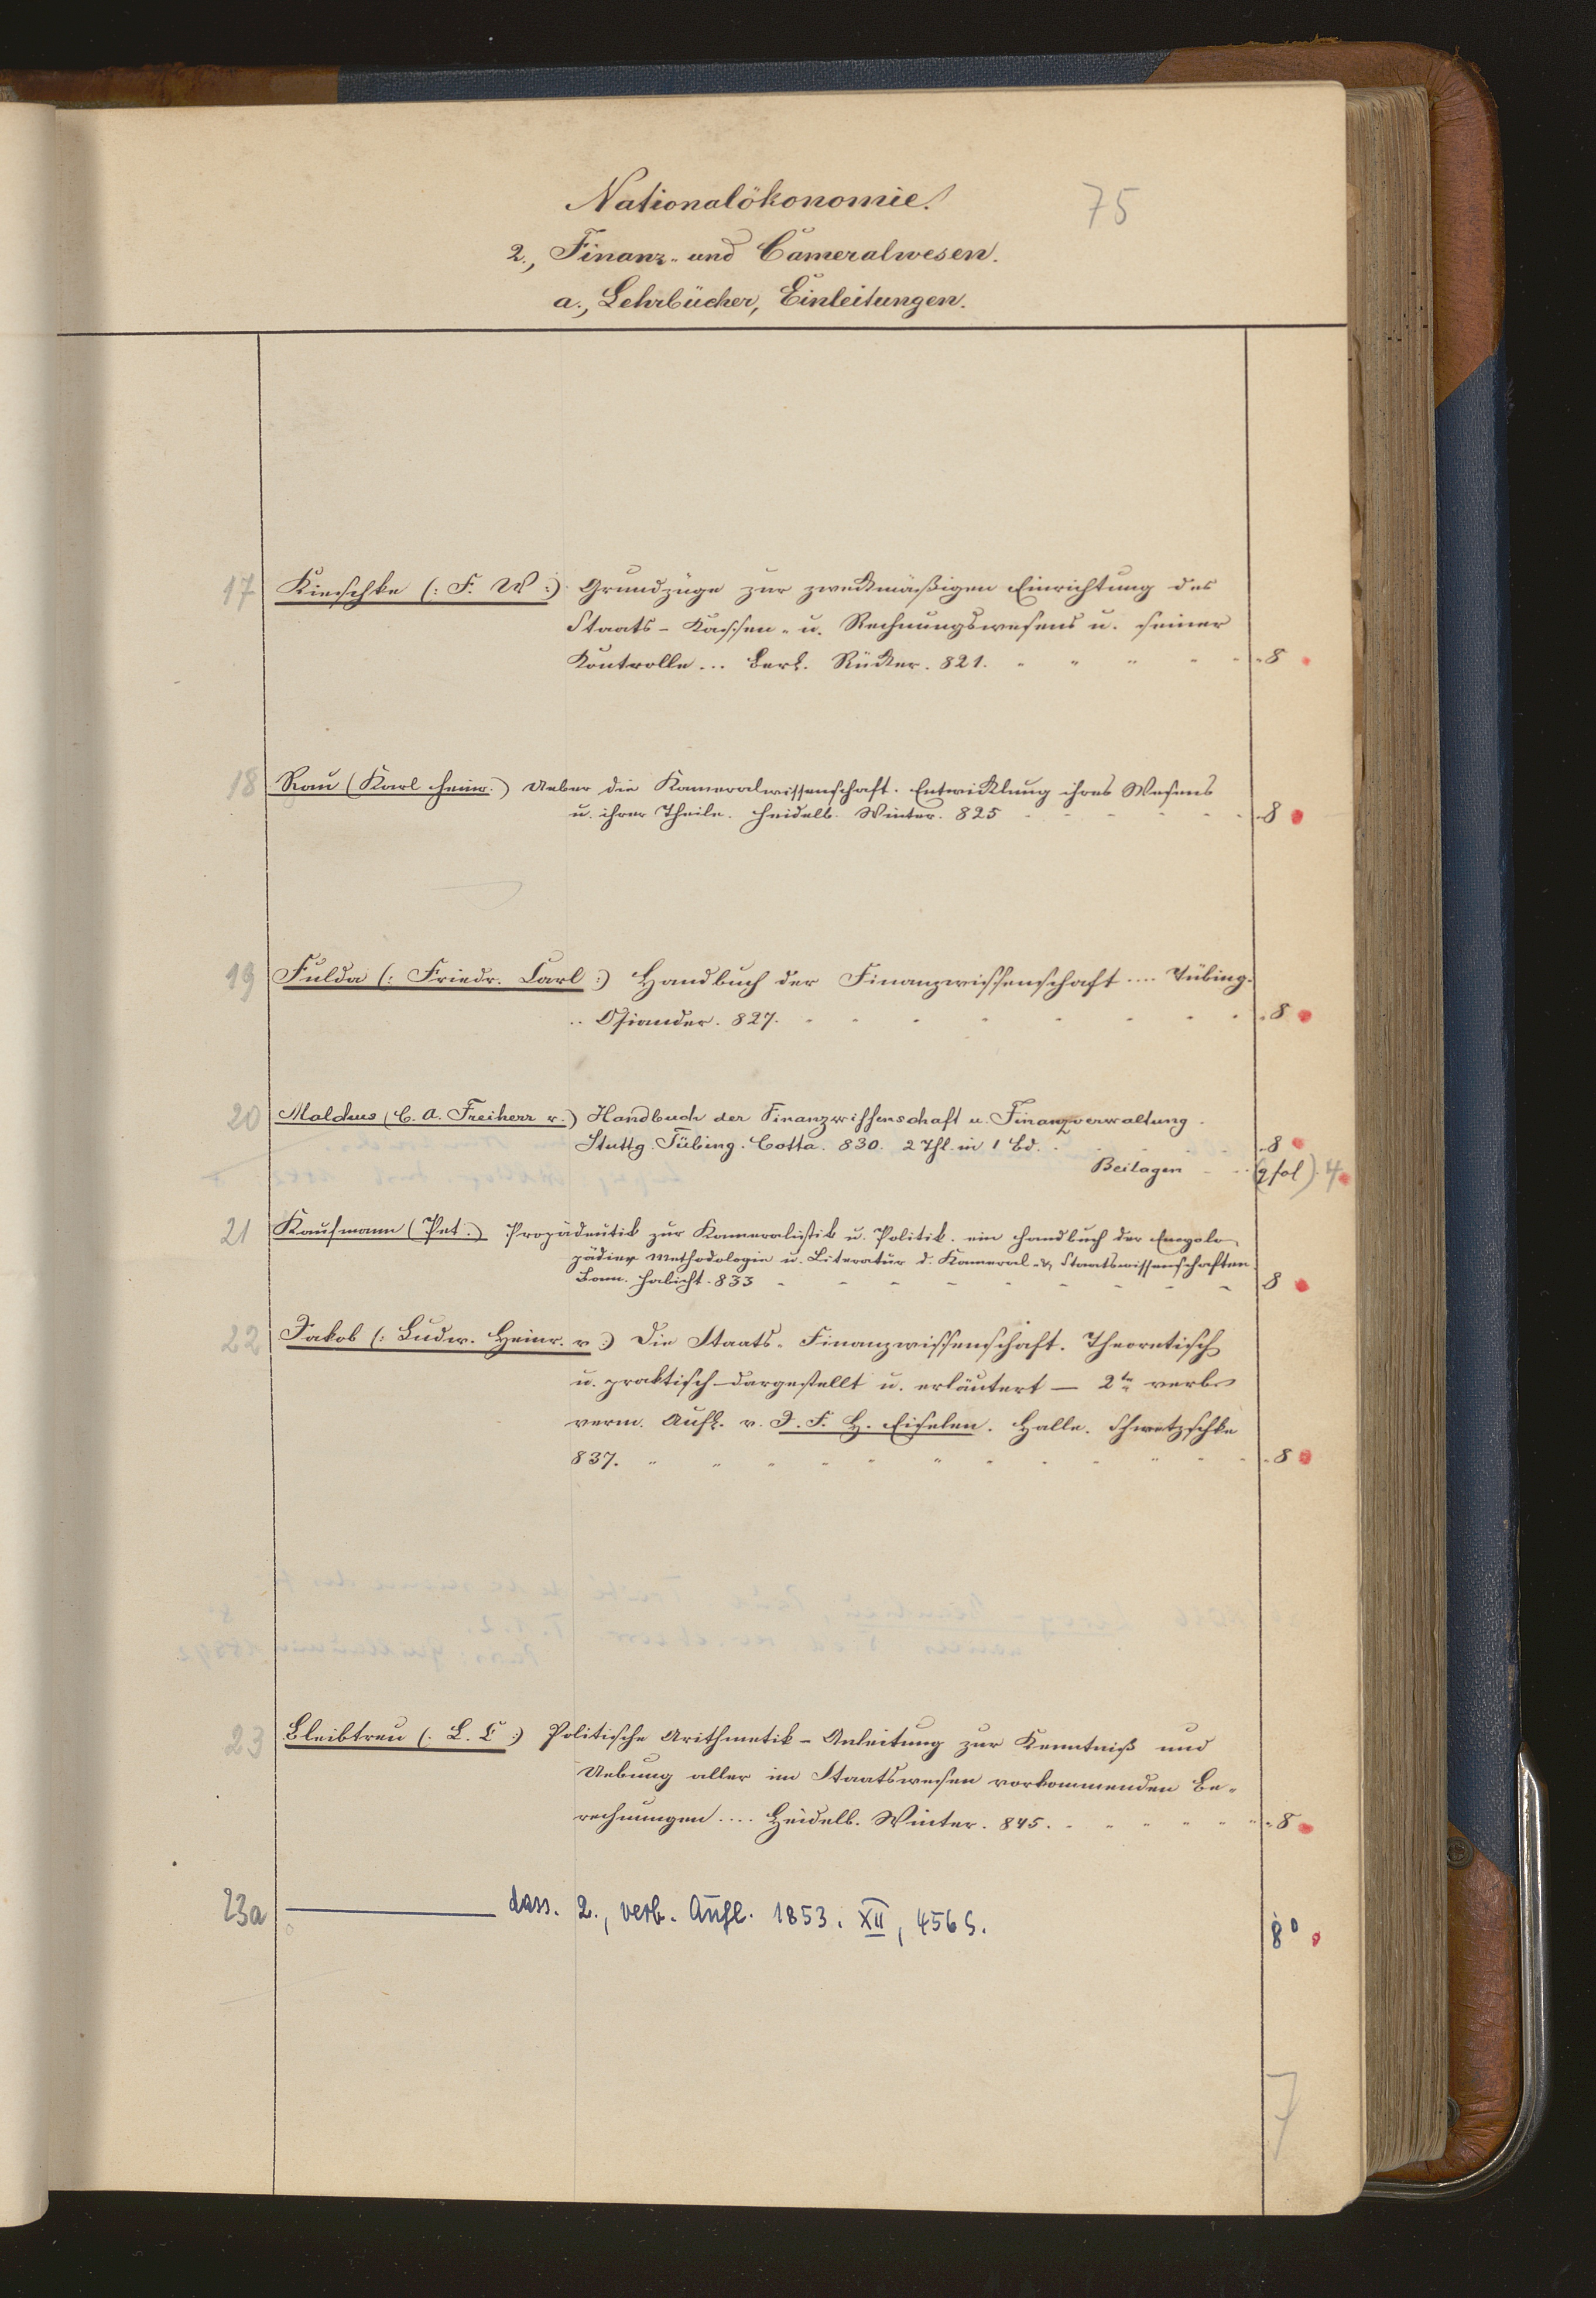 Nationalökonomie.
75
2., Finanz- und Cameralwesen.
a., Lehrbücher, Einleitungen.
17 Kieschke (: F. W :) Grundzüge zur zweckmäßigen Einrichtung des
Staats- Kassen- u. Rechnungswesens u. seiner
Kontrolle... Berl. Rücker. 821. 8
18 Rau (Karl Heinr.) Ueber die Kameralwissenschaft. Entwicklung ihres Wesens
u. ihrer Theile. Heidelb. Winter. 825 8
19 Fulda (: Friedr. Carl :) Handbuch der Finanzwissenschaft .... Tübing.
Osiander. 827. 8
20 Malchus (C. A. Freiherr v.) Handbuch der Finanzwissenschaft u. Finanzverwaltung.
Stuttg. Tübing. Cotta. 830. 2 Thl. in 1 Bd. 8
Beilagen (qfol) 4
21 Kaufmann (Pet.) Propädeutik zur Kameralistik u. Politik. ein Handbuch der Encyclo-
pädie, Methodologie u. Literatur d. Kameral- & Staatswissenschaften.
Bonn. Habicht. 833 8
22 Jakob (: Ludw. Heinr. v :) Die Staats- Finanzwissenschaft. Theoretisch
u. praktisch dargestellt u. erläutert — 2te verb.
verm. Aufl. v. J. F. H. Eiselen. Halle. Schwetzschke
837. 8
23 Bleibtreu (: L. C :) Politische Arithmetik - Anleitung zur Kenntniß und
Uebung aller im Staatswesen vorkommenden Be-
rechnungen .... Heidelb. Winter. 845. 8
23a ——— dass. 2., verb. Aufl. 1853. XII, 456 S. 8°
7